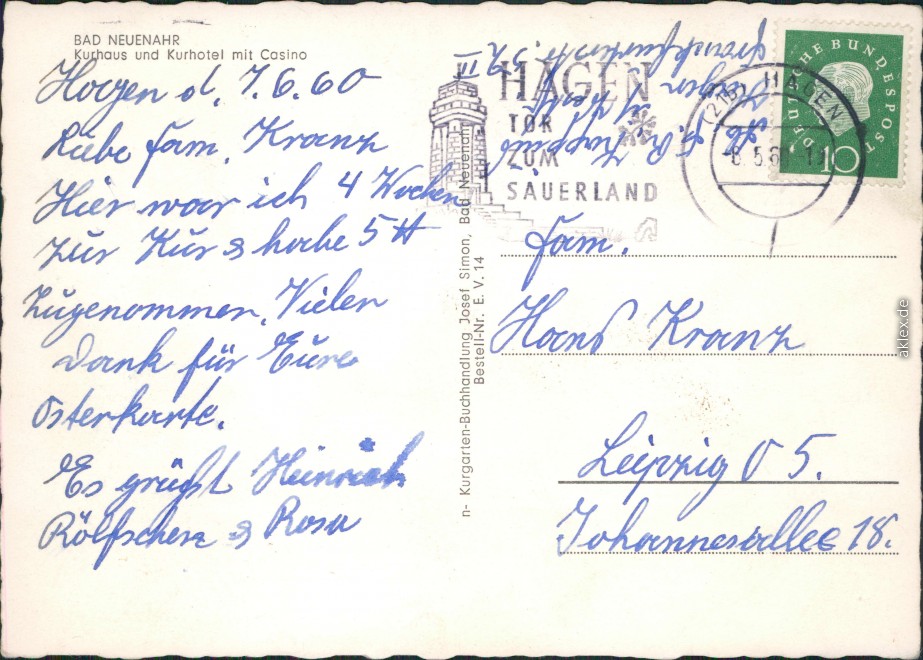 BAD NEUENAHR
Kurhaus und Kurhotel mit Casino
Hagen d. 7.6.60
Liebe Fam. Kranz
Hier war ich 4 Wochen
zur Kur & habe 5 ℔
Zugenommen. Vielen
Dank für Eure
Osterkarte.
Es grüßt Heinrich
& Rosa
n- Kurgarten-Buchhandlung Josef Simon, Bad Neuenahr
Bestell-Nr. E. V. 14
HAGEN
TOR
ZUM
SAUERLAND
(21b) HAGEN
DEUTSCHE BUNDESPOST
10
Fam.
Hans Kranz
Leipzig O 5.
Johannesallee 18.
aklex.de